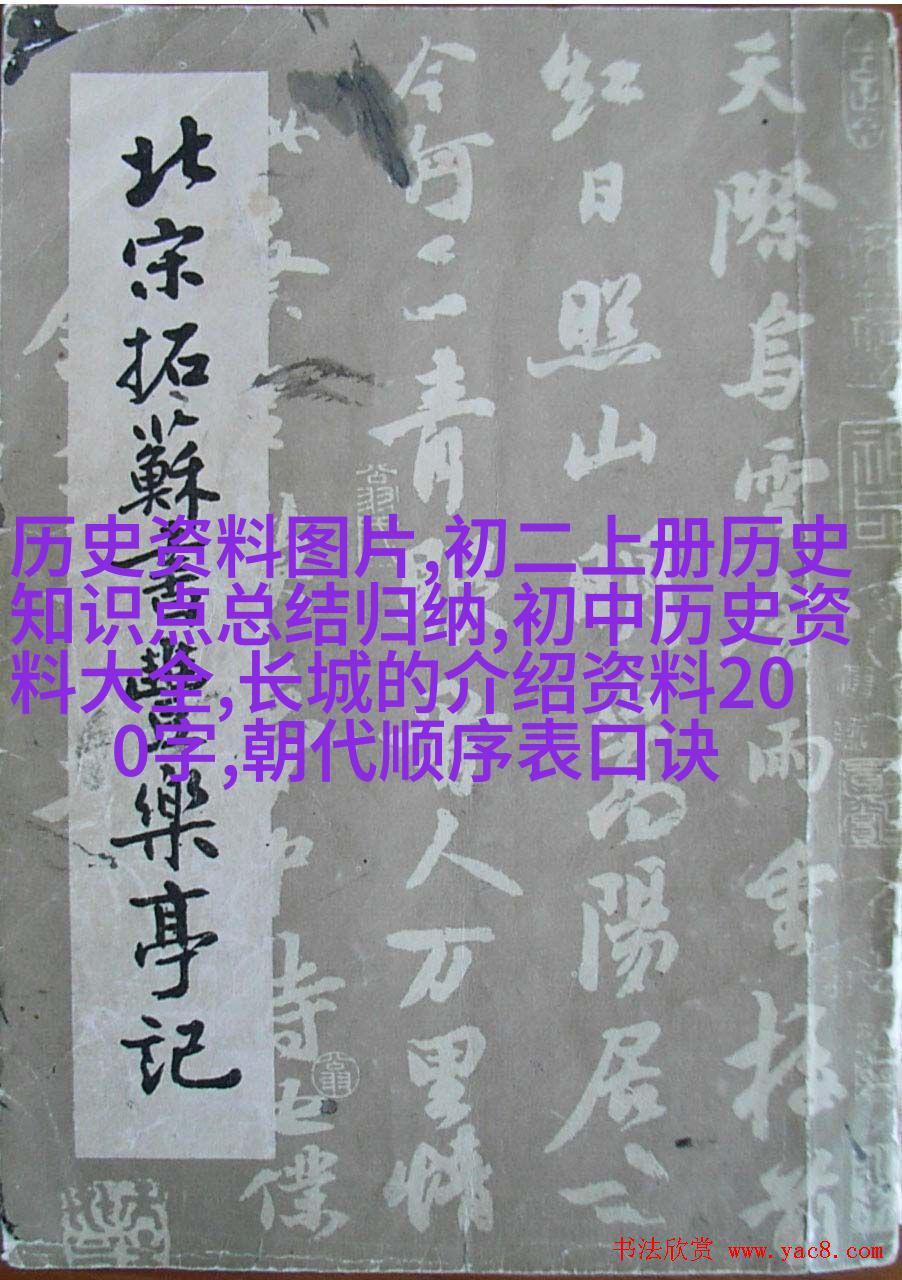 北宋拓蘇書豐樂亭記
天際烏雲雨重樓前
紅日照山明嵩陽居士
今何在青眼看人万里情
中詩也僕
历史资料图片,初二上册历史
知识点总结归纳,初中历史资
料大全,长城的介绍资料20
0字,朝代顺序表口诀
书法欣赏 www.yac8.com